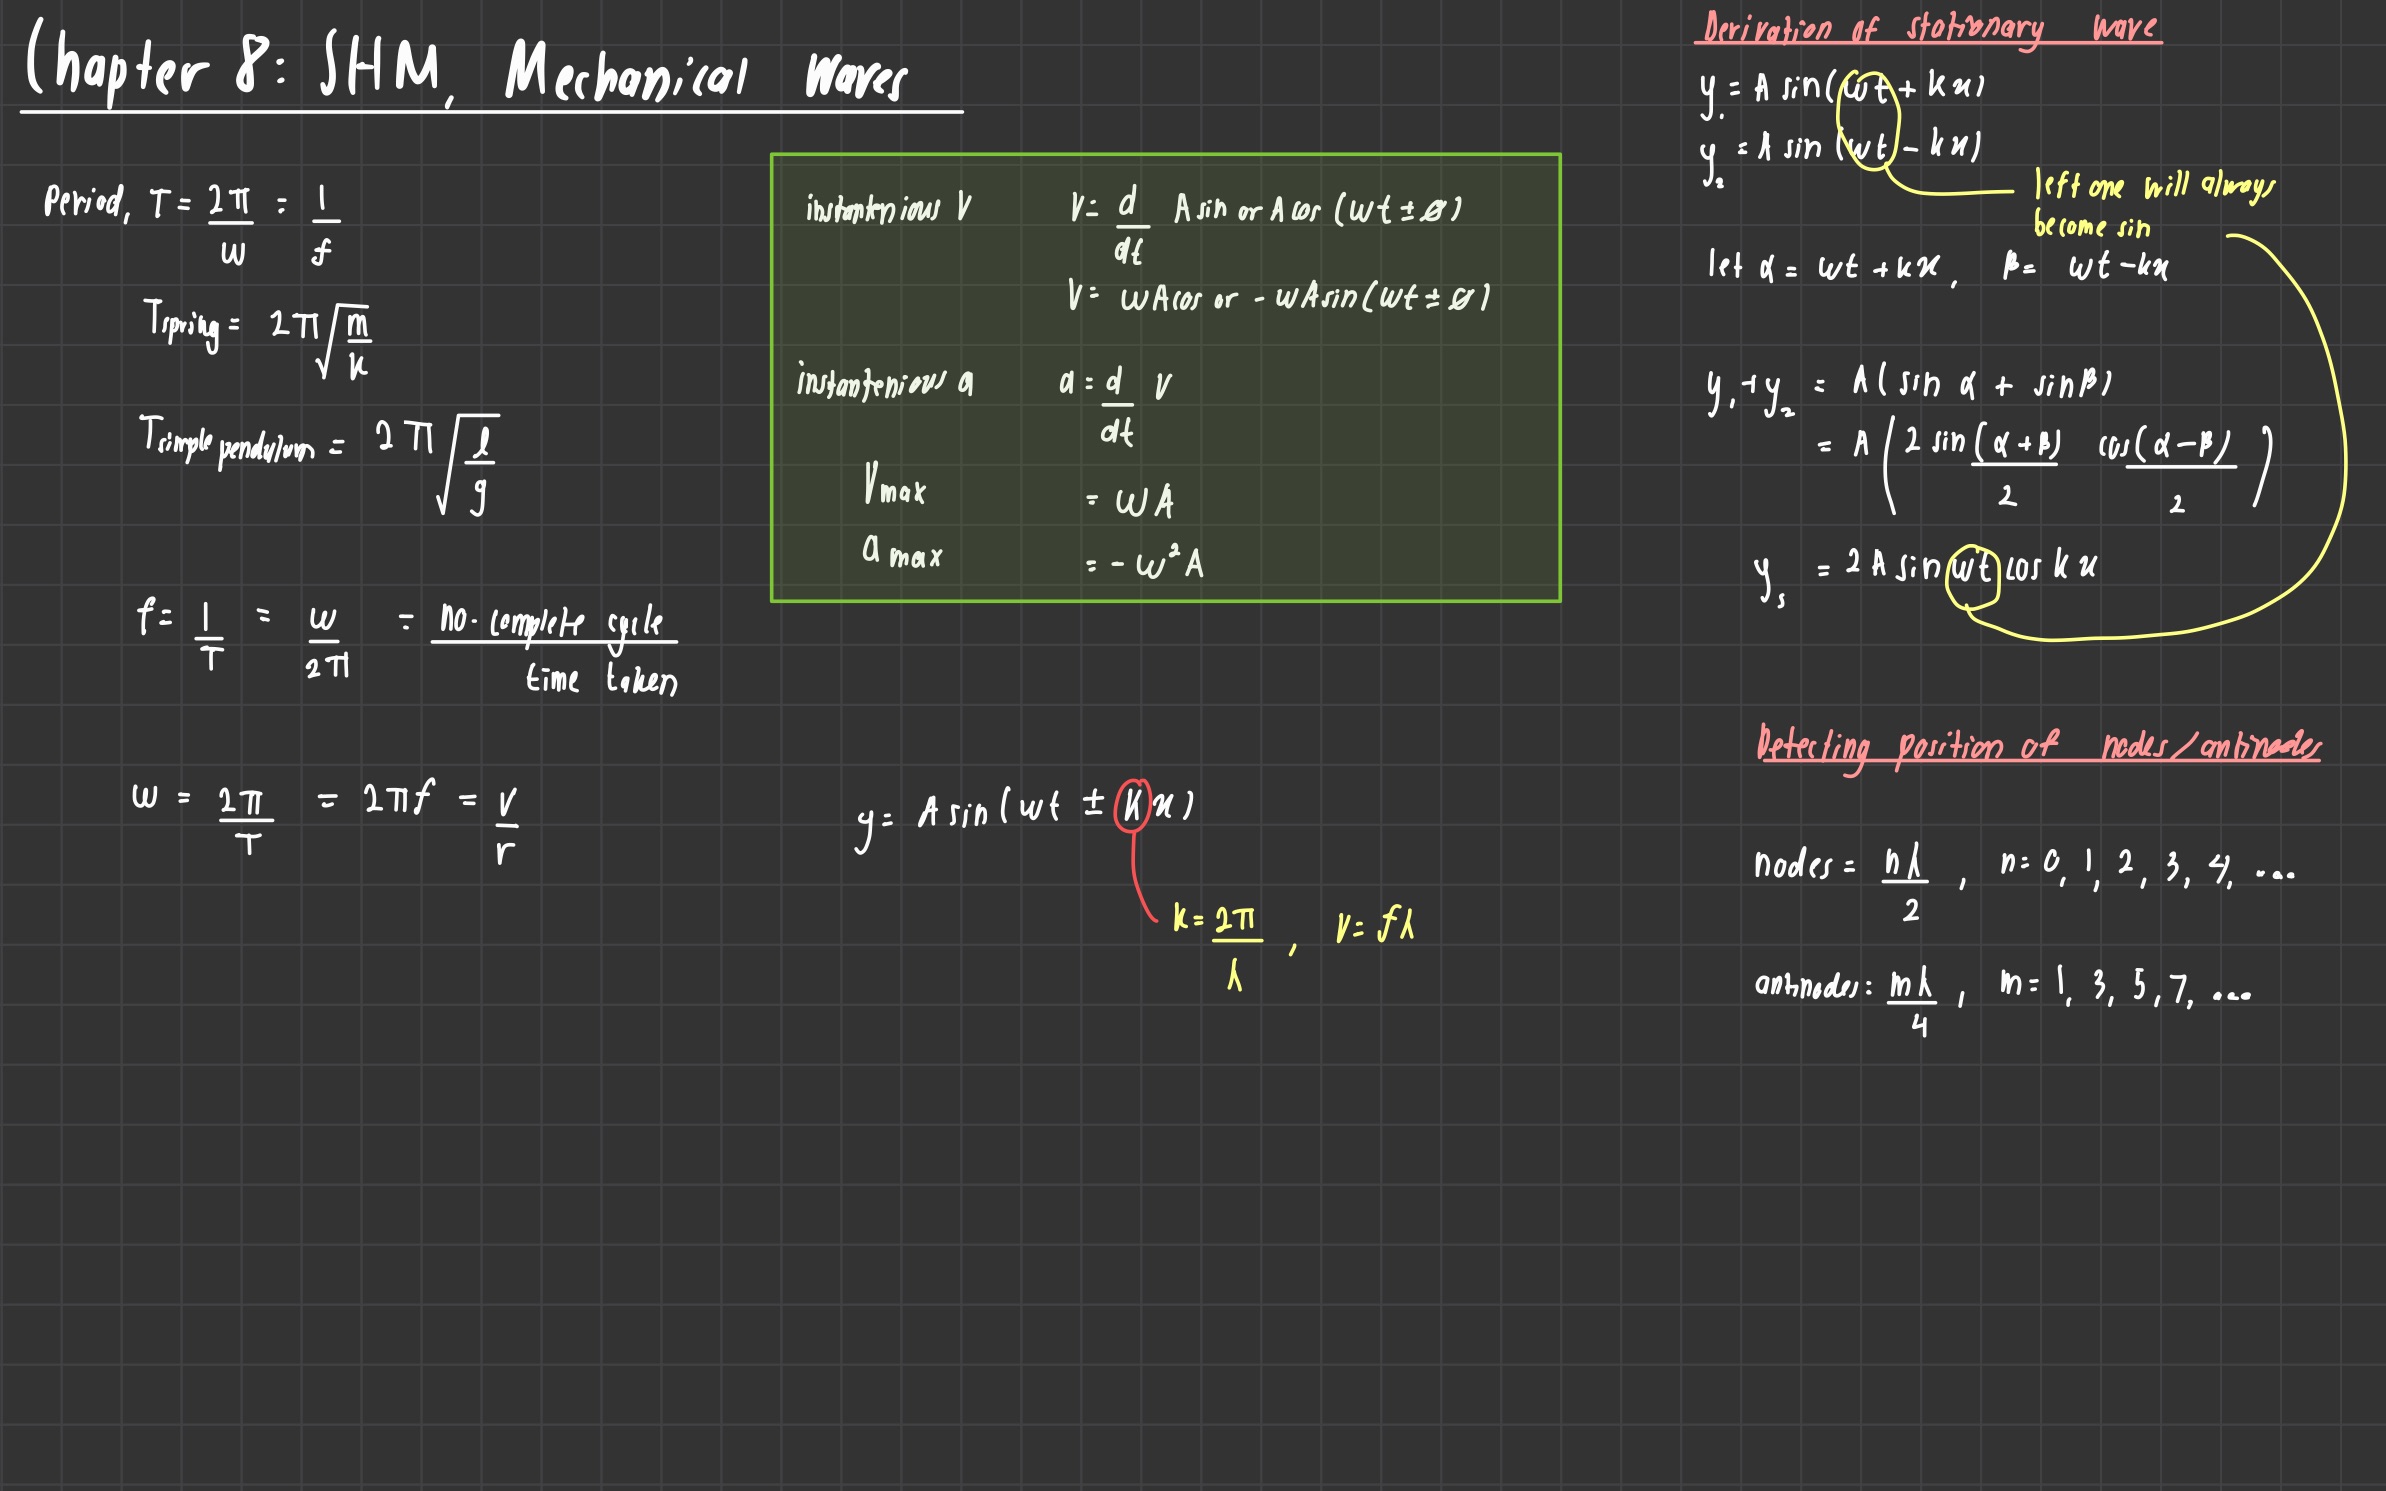 Chapter 8: SHM, Mechanical Waves
Period, T = 2π/ω = 1/f
Tspring = 2π√(m/k)
Tsimple pendulum = 2π√(l/g)
f = 1/T = ω/2π = no. complete cycle / time taken
ω = 2π/T = 2πf = v/r
instantenious V   V = d/dt A sin or A cos (ωt ± ø)
V = ωA cos or - ωA sin (ωt ± ø)
instantenious a   a = d/dt V
Vmax = ωA
a max = - ω²A
y = A sin (ωt ± kx)
k = 2π/λ , V = fλ
Derivation of stationary wave
y₁ = A sin (ωt + kx)
y₂ = A sin (ωt - kx)
left one will always
become sin
let α = ωt + kx, β = ωt - kx
y₁ + y₂ = A (sin α + sin β)
= A (2 sin (α + β)/2 cos (α - β)/2)
ys = 2A sin ωt cos kx
Detecting position of nodes/antinodes
nodes = nλ/2 , n = 0, 1, 2, 3, 4, ...
antinodes: mλ/4 , m = 1, 3, 5, 7, ...